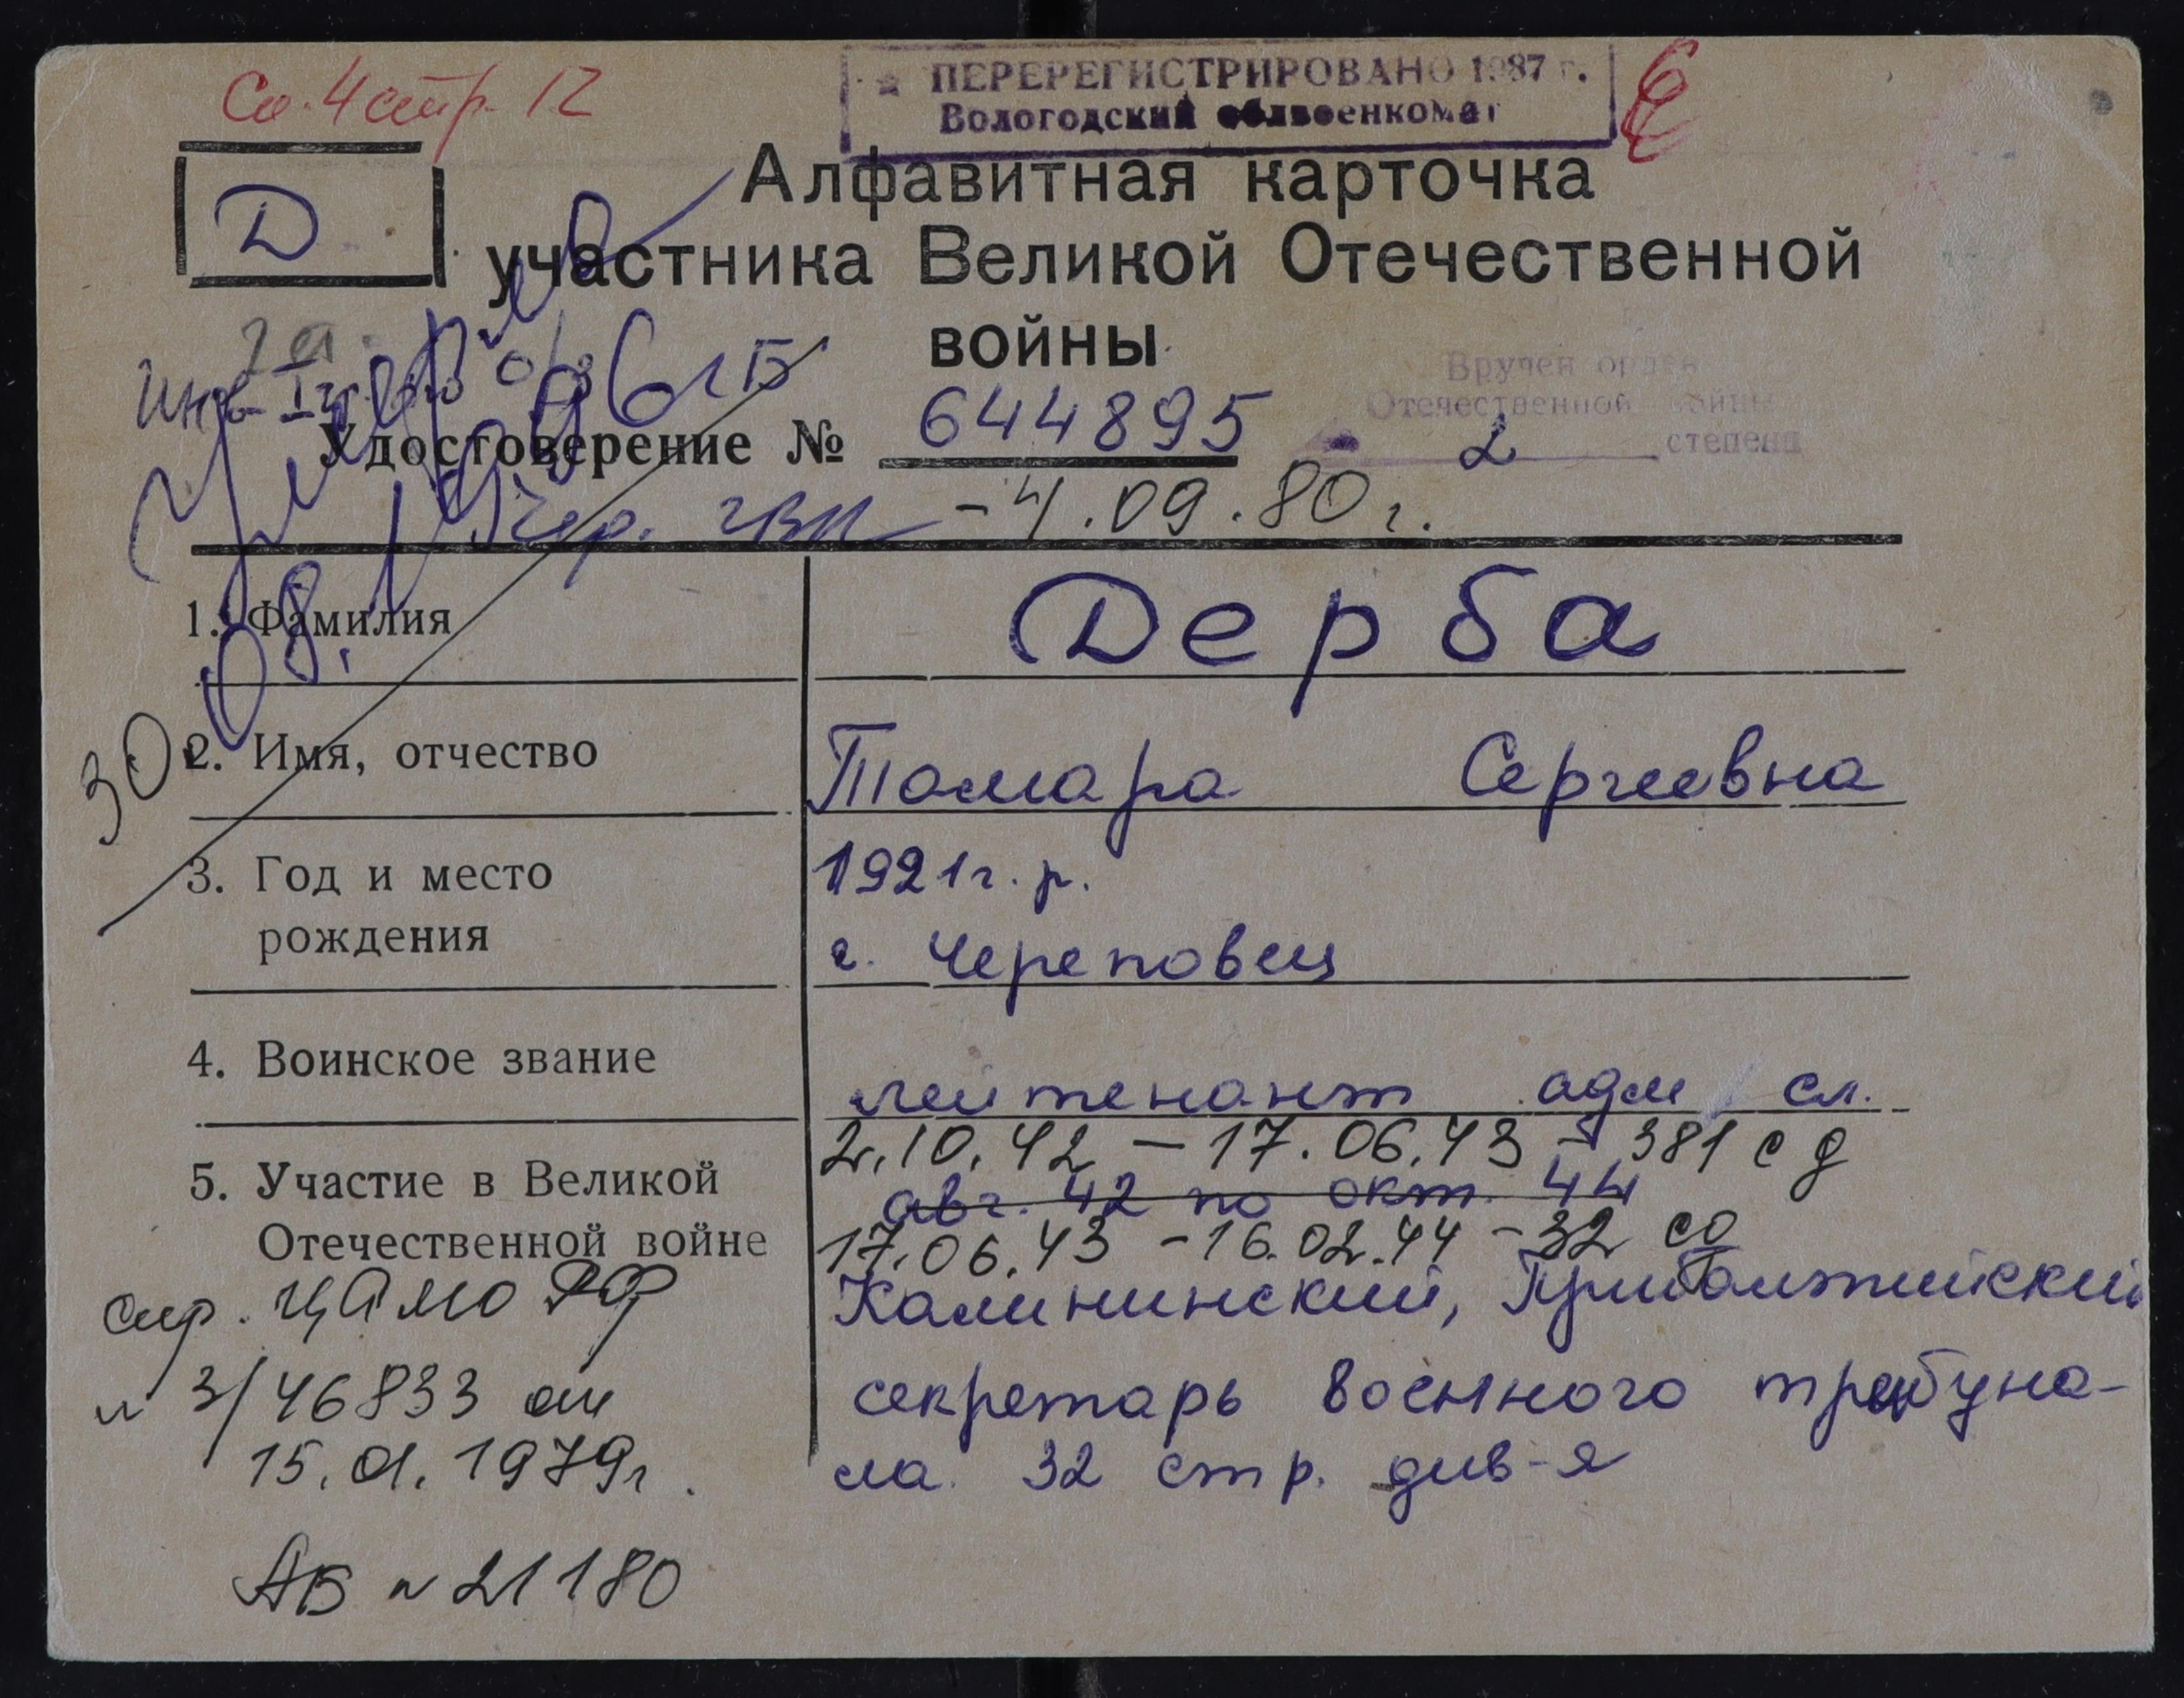 Сп. 4 стр. 12
ПЕРЕРЕГИСТРИРОВАНО 1987 г.
Вологодский облвоенкомат
Д
Алфавитная карточка
участника Великой Отечественной
войны
Вручен орден
Отечественной войны
2 степени
Инв. I гр.
Удостоверение № 644895
Чер. ГВК - 4.09.80 г.
Умерла
1. Фамилия
Дерба
2. Имя, отчество
Тамара Сергеевна
3. Год и место
рождения
1921 г. р.
г. Череповец
4. Воинское звание
лейтенант адм сл.
5. Участие в Великой
Отечественной войне
2.10.42 - 17.06.43 - 381 с д
авг. 42 по окт. 44
17.06.43 - 16.02.44 - 32 сд
Калининский, Прибалтийский
секретарь военного трибуна-
ла 32 стр. див-я
спр. ЦАМО РФ
№ 3/46833 от
15.01.1979г.
АБ № 21180